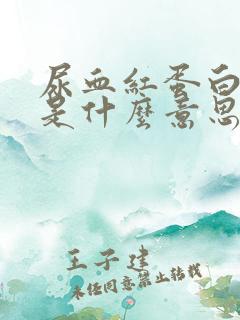 尿血紅蛋白
是什麼意思
王子建
未任同意禁止转载